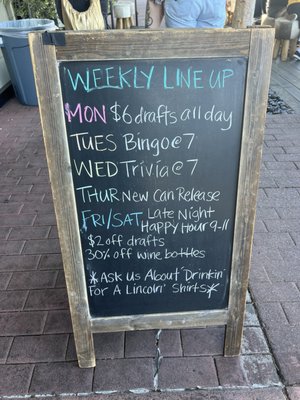 WEEKLY LINE UP
MON $6 drafts all day
TUES Bingo @ 7
WED Trivia @ 7
THUR New Can Release
FRI/SAT Late Night
Happy Hour 9-11
$2 off drafts
30% off wine bottles
*Ask Us About "Drinkin'
For A Lincoln" Shirts*